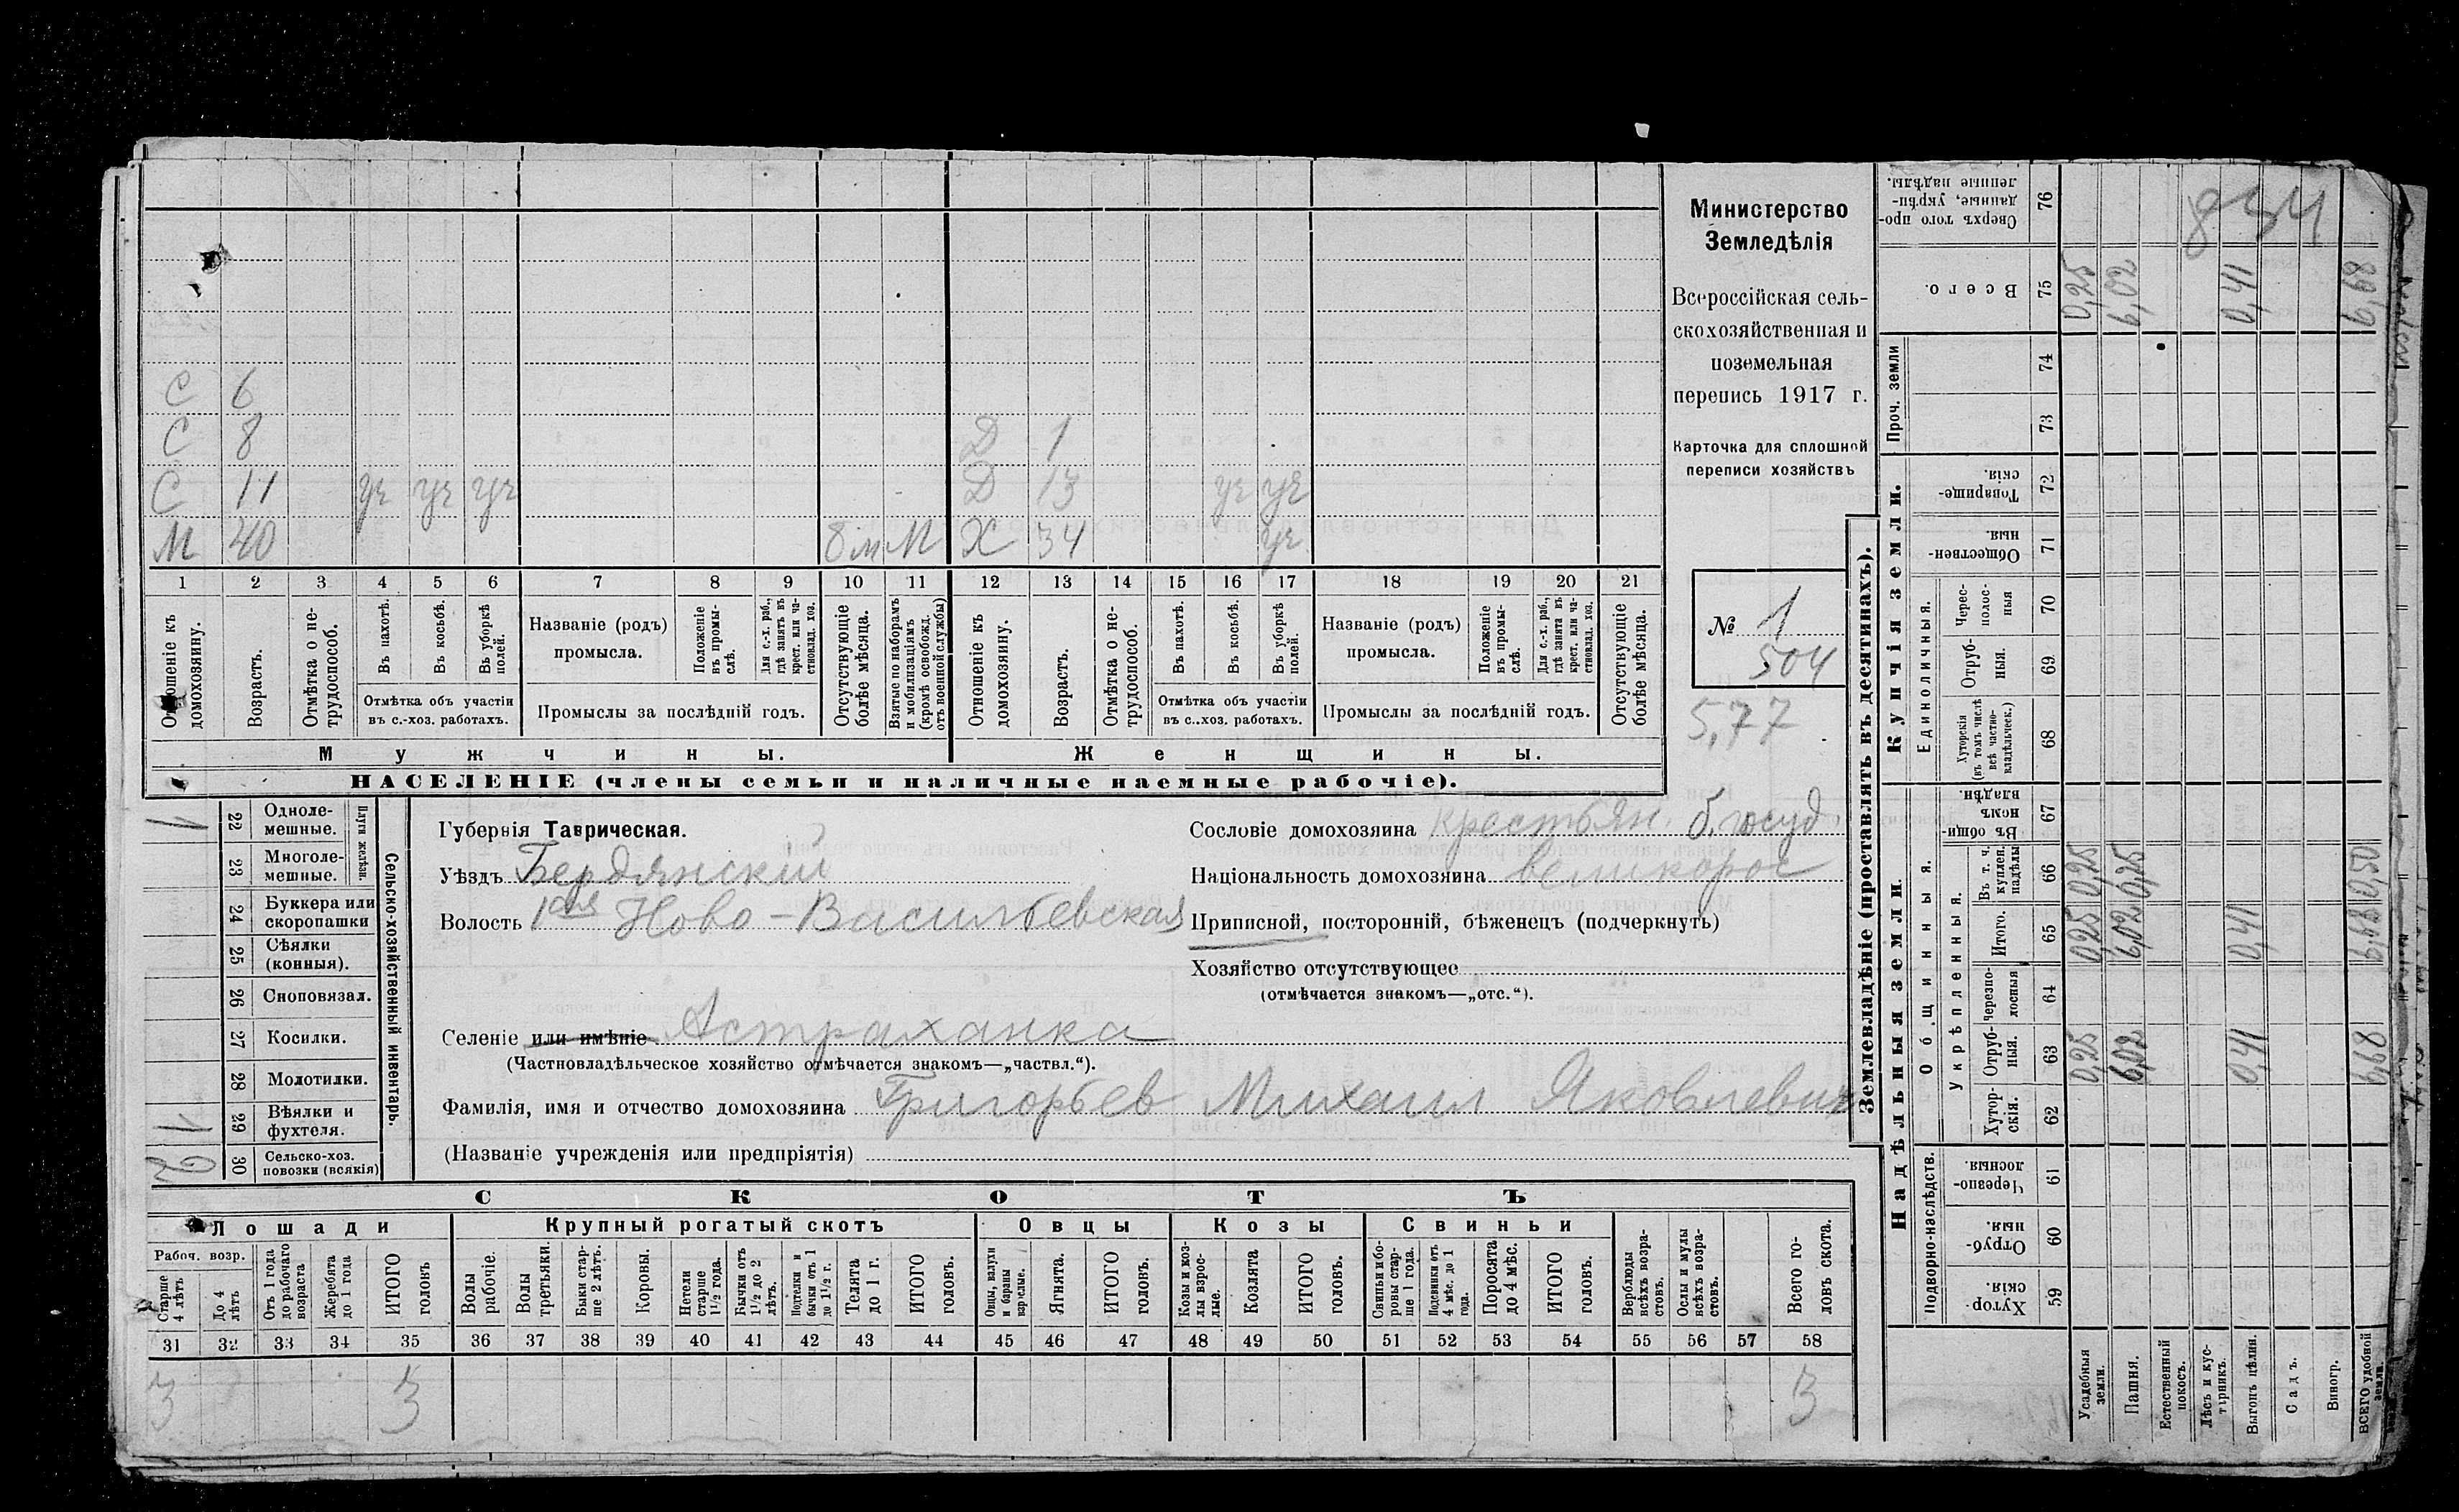 С 6
С 8 Д 1
С 11 уч уч уч Д 13 уч уч
М 40 8 м М Х 34 уч
1 2 3 4 5 6 7 8 9 10 11 12 13 14 15 16 17 18 19 20 21
Отношеніе къ домохозяину.
Возрастъ.
Отмѣтка о не-
трудоспособ.
Въ пахотѣ.
Въ косьбѣ.
Въ уборкѣ
полей.
Отмѣтка объ участіи
въ с.-хоз. работахъ.
Названіе (родъ)
промысла.
Положеніе
въ промы-
слѣ.
Для с.-х. раб.,
гдѣ занятъ въ
крест. или ча-
стновлад. хоз.
Промыслы за послѣдній годъ.
Отсутствующіе
болѣе мѣсяца.
Взятые по наборамъ
и мобилизаціямъ
(кромѣ освобожд.
отъ военной службы)
Отношеніе къ
домохозяину.
Возрастъ.
Отмѣтка о не-
трудоспособ.
Въ пахотѣ.
Въ косьбѣ.
Въ уборкѣ
полей.
Отмѣтка объ участіи
въ с.-хоз. работахъ.
Названіе (родъ)
промысла.
Положеніе
въ промы-
слѣ.
Для с.-х. раб.,
гдѣ занята въ
крест. или ча-
стновлад. хоз.
Промыслы за послѣдній годъ.
Отсутствующіе
болѣе мѣсяца.
Мужчины. Женщины.
НАСЕЛЕНІЕ (члены семьи и наличные наемные рабочіе).
Министерство
Земледѣлія
Всероссійская сель-
скохозяйственная и
поземельная
перепись 1917 г.
Карточка для сплошной
переписи хозяйствъ
№ 1
504
5,77
1 22 Одноле-
мешные.
23 Многоле-
мешные.
Плуги желѣзн.
24 Буккера или
скоропашки
25 Сѣялки
(конныя).
26 Сноповязал.
27 Косилки.
28 Молотилки.
1 29 Вѣялки и
фухтеля.
2 30 Сельско-хоз.
повозки (всякія)
Сельско-хозяйственный инвентарь.
Губернія Таврическая.
Уѣздъ Бердянскій
Волость 1ая Ново-Васильевская
Сословіе домохозяина крестьян. б. госуд.
Національность домохозяина великорос
Приписной, посторонній, бѣженецъ (подчеркнуть)
Хозяйство отсутствующее
(отмѣчается знакомъ—„отс.“).
Селеніе или имѣніе Астраханка
(Частновладѣльческое хозяйство отмѣчается знакомъ—„частвл.“).
Фамилія, имя и отчество домохозяина Григорьев Михаил Яковлевич
(Названіе учрежденія или предпріятія)
СКОТЪ
Лошади Крупный рогатый скотъ Овцы Козы Свиньи
Рабоч. возр.
Старше
4 лѣтъ
До 4
лѣтъ
Отъ 1 года
до рабочаго
возраста
Жеребята
до 1 года
ИТОГО
головъ
Волы
рабочіе.
Волы
третьяки.
Быки стар-
ше 2 лѣтъ.
Коровы.
Нетели
старше
1½ года.
Бычки отъ
1½ до 2
лѣтъ.
Подтелки и
бычки отъ 1
до 1½ г.
Телята
до 1 г.
ИТОГО
головъ.
Овцы, валухи
и бараны
взрослые.
Ягнята.
ИТОГО
головъ.
Козы и коз-
лы взрос-
лые.
Козлята
ИТОГО
головъ.
Свиньи и бо-
ровы стар-
ше 1 года.
Подсвинки отъ
4 мѣс. до 1
года.
Поросята
до 4 мѣс.
ИТОГО
головъ.
Верблюды
всѣхъ возра-
стовъ.
Ослы и мулы
всѣхъ возра-
стовъ.
Всего го-
ловъ скота.
31 32 33 34 35 36 37 38 39 40 41 42 43 44 45 46 47 48 49 50 51 52 53 54 55 56 57 58
3 3 3
Землевладѣніе (проставлять въ десятинахъ).
Купчія земли.
Надѣльныя земли.
Сверхъ того про-
данные, укрѣп-
ленные надѣлы.
76
834
Всего.
75 0,25 6,02 0,41 6,68
Проч. земли
74
73
Товарище-
скія.
72
Обществен-
ныя.
71
Единоличныя.
Черес-
полос-
ныя
70
Отруб-
ныя.
69
Хуторскія
(въ томъ числѣ
всѣ частно-
владѣльческ.)
68
Общинныя.
Въ общи-
номъ
владѣн.
67
Укрѣпленныя.
Въ т. ч.
куплен.
надѣлы
66 0,25 0,25 0,50
Итого.
65 0,25 6,02 0,41 6,68
Черезпо-
лосныя
64
Отруб-
ныя.
63 0,25 6,02 0,41 6,68
Хутор-
скія.
62
Подворно-наслѣдств.
Черезпо-
лосныя.
61
Отруб-
ныя.
60
Хутор-
скія.
59
Усадебныя
земли.
Пашня.
Естественный
покосъ.
Лѣсъ и кус-
тарникъ.
Выгонъ цѣлин.
Садъ.
Виногр.
ВСЕГО удобной
земли.